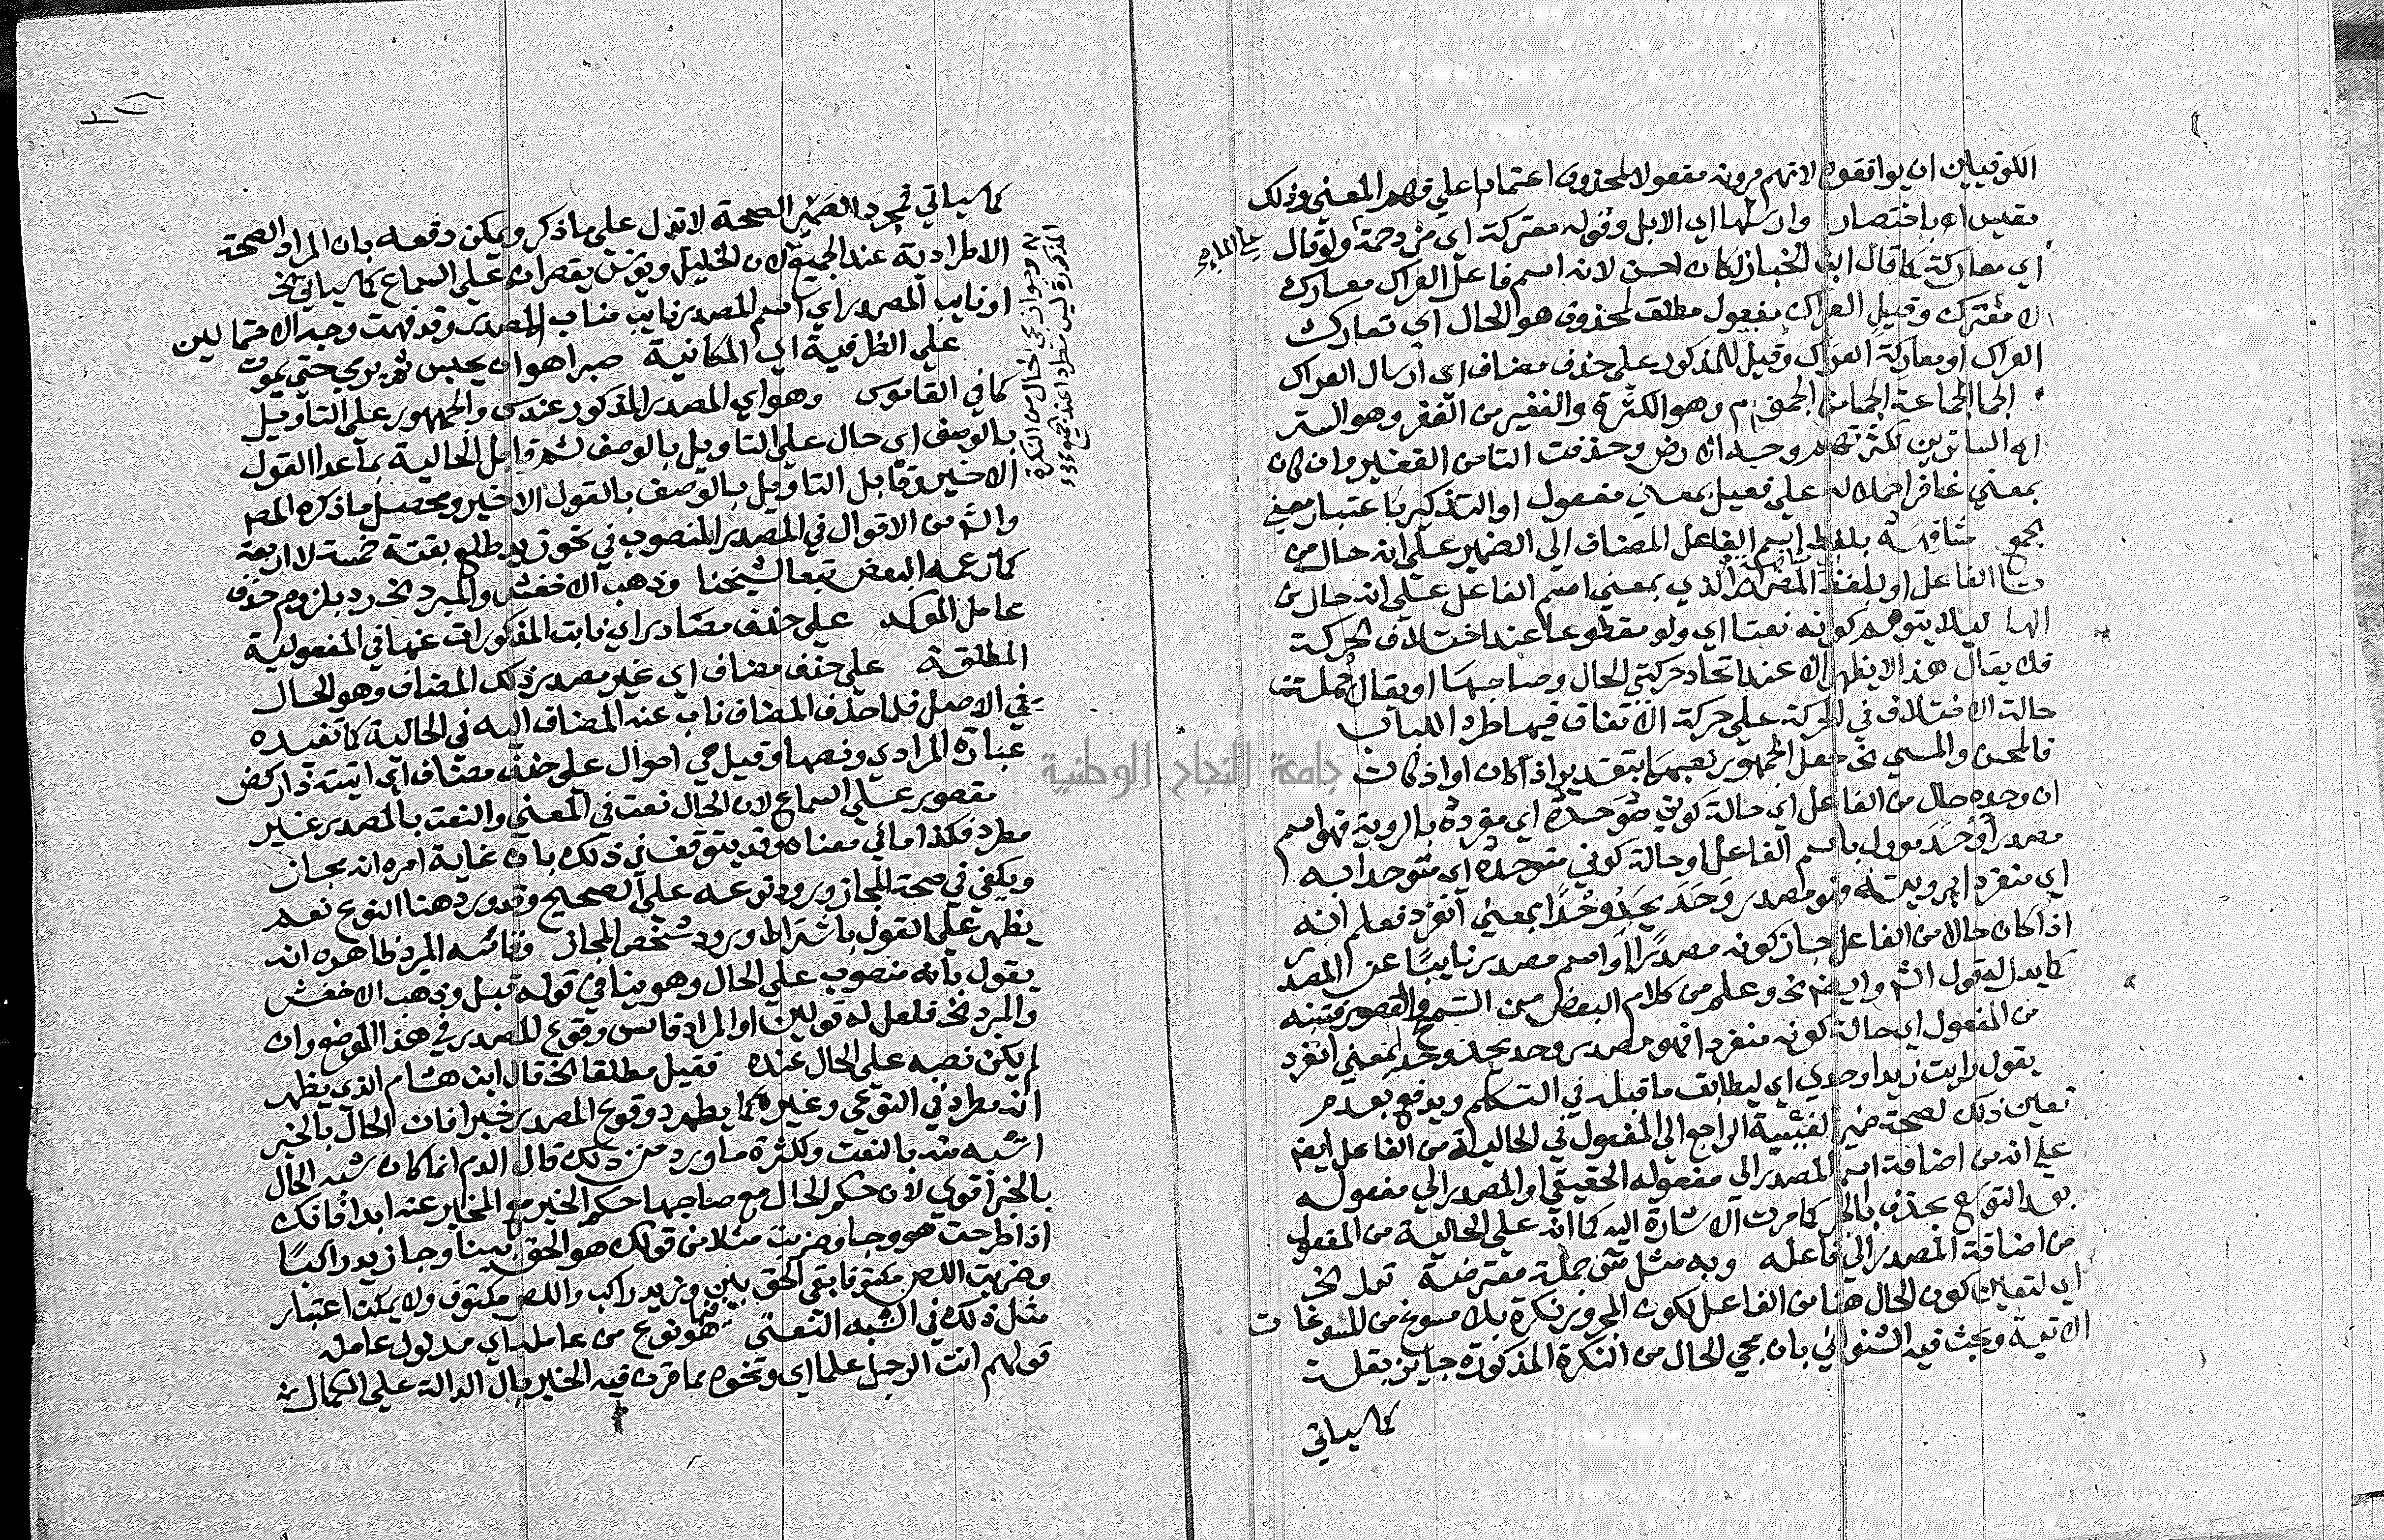 الكوفيين ان يوافقوه لانهم يرونه مفعولا لمحذوف اعتمادا علي فهم المعني وذلك
مقيس اه باختصار وارسلها اي الابل وقوله معتركة اي مزدحمة ولو قال
علي الماء
اي معاركة كما قال ابن الخباز لكان احسن لانه اسم فاعل العراك معارك
لا معترك وقيل العراك مفعول مطلق لمحذوف هو الحال اي تعارك
العراك او معاركة العراك وقيل للمذكور علي حذف مضاف اي ارسال العراك
الجما الجماعة الجما من الجموم وهو الكثرة والغفير من الغفر وهو الستر
اي الساترين لكثرتهم وجه الارض وحذفت التا من الغفير وان كان
بمعني غافر احملا له علي فعيل بمعني مفعول او التذكير باعتبار معني
الجمع مشافهة بلفظ اسم الفاعل المضاف الي الضمير علي انه حال من
تا الفاعل او بلفظ المصدر الذي بمعني اسم الفاعل علي انه حال من
الها ليلا يتوهم كونه نعتا اي ولو مقطوعا عند اختلاف الحركة
فلا يقال هذا لا يظهر الا عند اتحاد حركتي الحال وصاحبها او يقال حملت
حالة الاختلاف في الحركة علي حركة الاتفاق فيها طرد اللباب
فالمحسن والمسي الخ جعل الجمهور نصبهما بتقدير اذا كان او اذ كان
ان وحده حال من الفاعل اي حالة كوني موحده اي مفرده بالروية فهو اسم
مصدر اوحد موول باسم الفاعل او حالة كوني متوحده اي متوحدا به
اي منفردا برويته فهو مصدر وحد يحد وحدا بمعني انفرد فعلم انه
اذا كان حالا من الفاعل جاز كونه مصدرا او اسم مصدر نايبا عن المصدر
كما يدل له قول الش وايضا الخ وعلم من كلام البعض من التسمح والقصور فتنبه
من المفعول اي حالة كونه منفردا فهو مصدر وحد يحد وحدا بمعني انفرد
يقول رايت زيدا وحدي اي ليطابق ما قبله في التكلم ويدفع بعدم
تعين ذلك لصحة ضمير الغيبة الراجع الي المفعول في الحالية من الفاعل ايض
علي انه من اضافة اسم المصدر الي مفعوله الحقيقي او المصدر الي مفعوله
بعد التوسع بحذف بالجر كما مرت الاشارة اليه كما انه علي الحالية من المفعول
من اضافة المصدر الي فاعله وبه مثل س جملة معترضة قوله الخ
اي لتعين كون الحال هنا من الفاعل لكون المجرور نكرة بلا مسوغ من المسوغات
الاتية وبحث فيه الشنواني بان مجي الحال من النكرة المذكورة جايز بقلة
كما سياتي
كما سياتي فمجرد الصحة لا تدل علي ما ذكر ويمكن دفعه بان المراد الصحة
الاطرادية عند الجميع لان الخليل ويونس يقصران علي السماع كما سياتي الخ
او نايب المصدر اي اسم المصدر نايب مناب المصدر وقد فهمت وجه الاحتمالين
المذكورة ليس مطردا عند الجميع
وجواز مجي الحال من النكرة
علي الظرفية اي المكانية صبرا هو ان يحبس ثم يرمي حتي يموت
كما في القاموس وهو اي المصدر المذكور عند س والجمهور علي التاويل
بالوصف اي حال علي التاويل بالوصف لشهر قابل الحالية بما عدا القول
الاخير وقابل التاويل بالوصف بالقول الاخير ومحصل ما ذكره المص
والش من الاقوال في المصدر المنصوب في نحو زيد طلع بغتة خمسة لا اربعة
كما زعمه البعض تبعا لشيخنا وذهب الاخفش والمبرد الخ رد بلزوم حذف
عامل الموكد علي حذف مصادر اي نابت المذكورات عنها في المفعولية
المطلقة علي حذف مضاف اي غير مصدر ذلك المضاف وهو الحال
في الاصل فلما حذف المضاف ناب عنه المضاف اليه في الحالية كما تفيده
عبارة المرادي ونصها وقيل هي احوال علي حذف مضاف اي اتيته ذا ركض
مقصور علي السماع لان الحال نعت في المعني والنعت بالمصدر غير
مطرد فكذا ما في معناه وقد يتوقف في ذلك بان غاية امره انه مجاز
ويكفي في صحة المجاز ورود نوعه علي الصحيح وقد ورد هنا النوع نعم
يظهر علي القول باشتراط ورود شخص المجاز وقاسه المبرد ظاهره انه
يقول بانه منصوب علي الحال وهو ينافي قوله قبل وذهب الاخفش
والمبرد الخ فلعل له قولين او المراد قاس وقوع المصدر في هذا الموضع وان
لم يكن نصبه علي الحال عنده فقيل مطلقا الخ قال ابن هشام الذي يظهر
انه مطرد في النوعي وغيره كما يطرد وقوع المصدر خبرا فان الحال بالخبر
اشبه منه بالنعت ولكثرة ما ورد من ذلك قال الدم انما كان شبه الحال
بالخبر اقوي لان حكم الحال مع صاحبها حكم الخبر مع المخبر عنه ابدا فانك
اذا طرحت هو وجا وضربت مثلا من قولك هو الحق بينا وجا زيد راكبا
وضربت اللص مكتوفا بقي الحق بين وزيد راكب واللص مكتوف ولا يمكن اعتبار
مثل ذلك في الشبه النعتي فيما هو نوع من عامله اي مدلول عامله
قولهم انت الرجل علما اي ونحوه مما قرن فيه الخبر بال الدالة علي الكمال
جامعة النجاح الوطنية